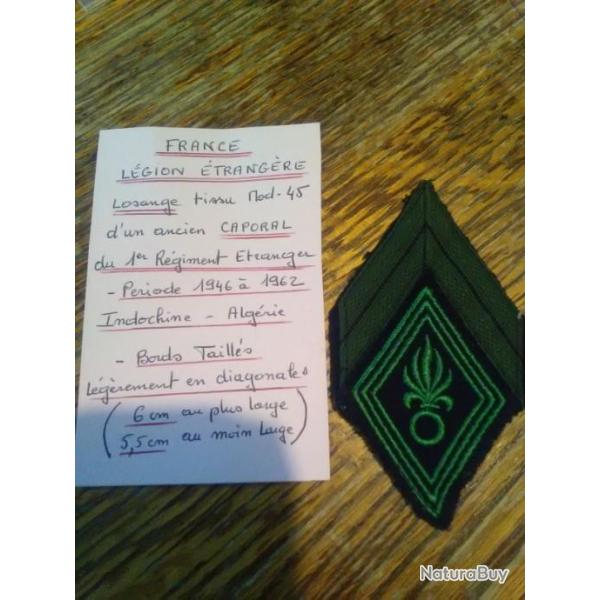 FRANCE
LÉGION ÉTRANGÈRE
Losange tissu Mod-45
d'un ancien CAPORAL
du 1er Régiment Etranger
- Periode 1946 à 1962
Indochine - Algérie
- Bords Taillés
légèrement en diagonales
( 6 cm au plus large
5,5cm au moin large )
NaturaBuy